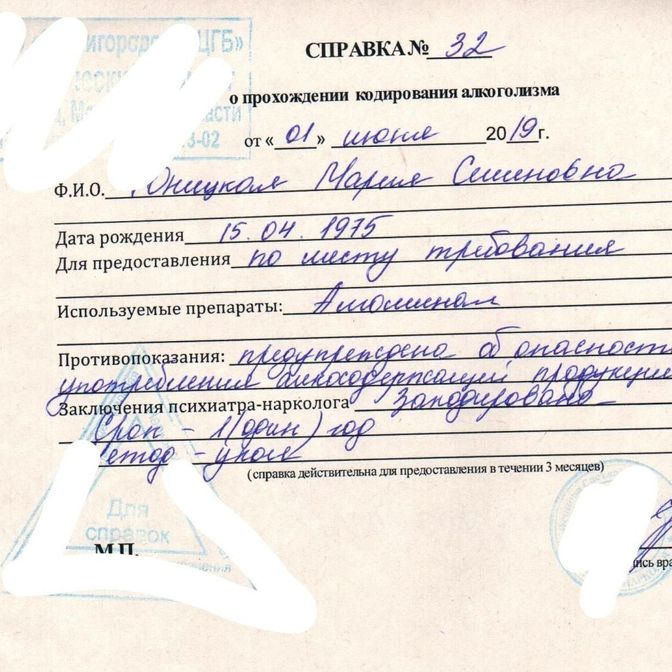 ЦГБ»
СПРАВКА № 32
о прохождении кодирования алкоголизма
от « 01 » июня 2019 г.
-02
Ф.И.О. Мария Семеновна
Дата рождения 15.04.1975
Для предоставления по месту требования
Используемые препараты:
Противопоказания: предупреждена об опасност
употребления алкосодержащей продукции
Заключения психиатра-нарколога Закодирована
Срок - 1 (один) год
етод - укол
(справка действительна для предоставления в течении 3 месяцев)
Для
справок
М.П.
ись вра